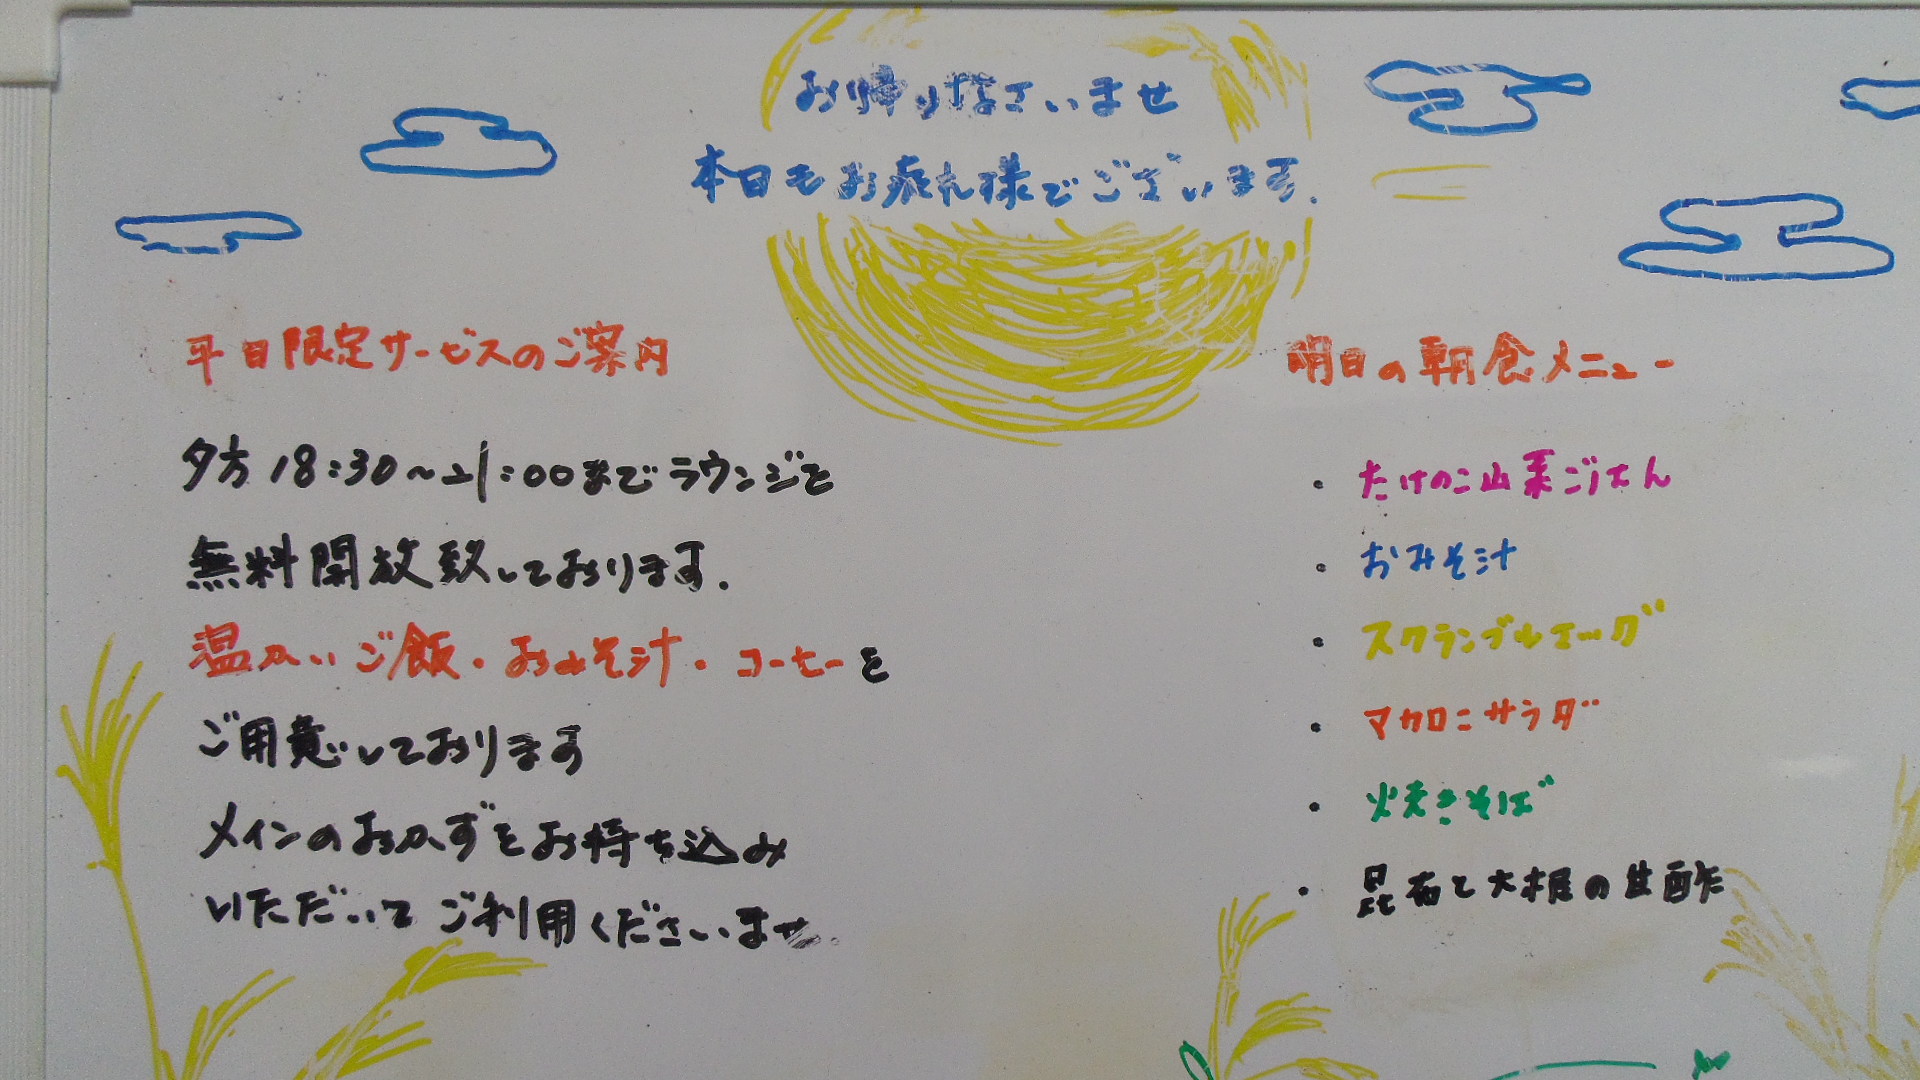 お帰りなさいませ
本日もお疲れ様でございます.
平日限定サービスのご案内
夕方18:30～21:00までラウンジを
無料開放致しております.
温かいご飯・おみそ汁・コーヒーを
ご用意しております
メインのおかずをお持ち込み
いただいてご利用くださいませ.
明日の朝食メニュー
・たけのこ山菜ごはん
・おみそ汁
・スクランブルエッグ
・マカロニサラダ
・焼きそば
・昆布と大根の生酢